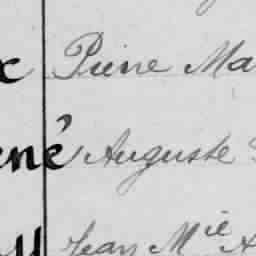 x Pierre Ma
ené Auguste
Jean Mie A